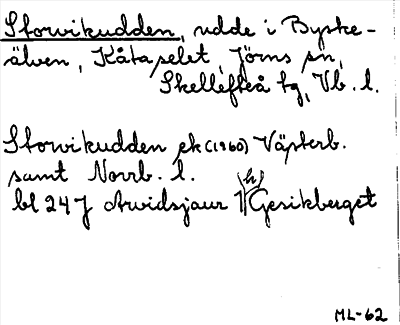 Storvikudden, udde i Byske-
älven, Kåtaselet, Jörns sn,
Skellefteå tg, Vb. l.
Storvikudden ek (1960) Västerb.
samt Norrb. l.
bl 24 J Arvidsjaur 1 (h) Gesikberget
ML-62